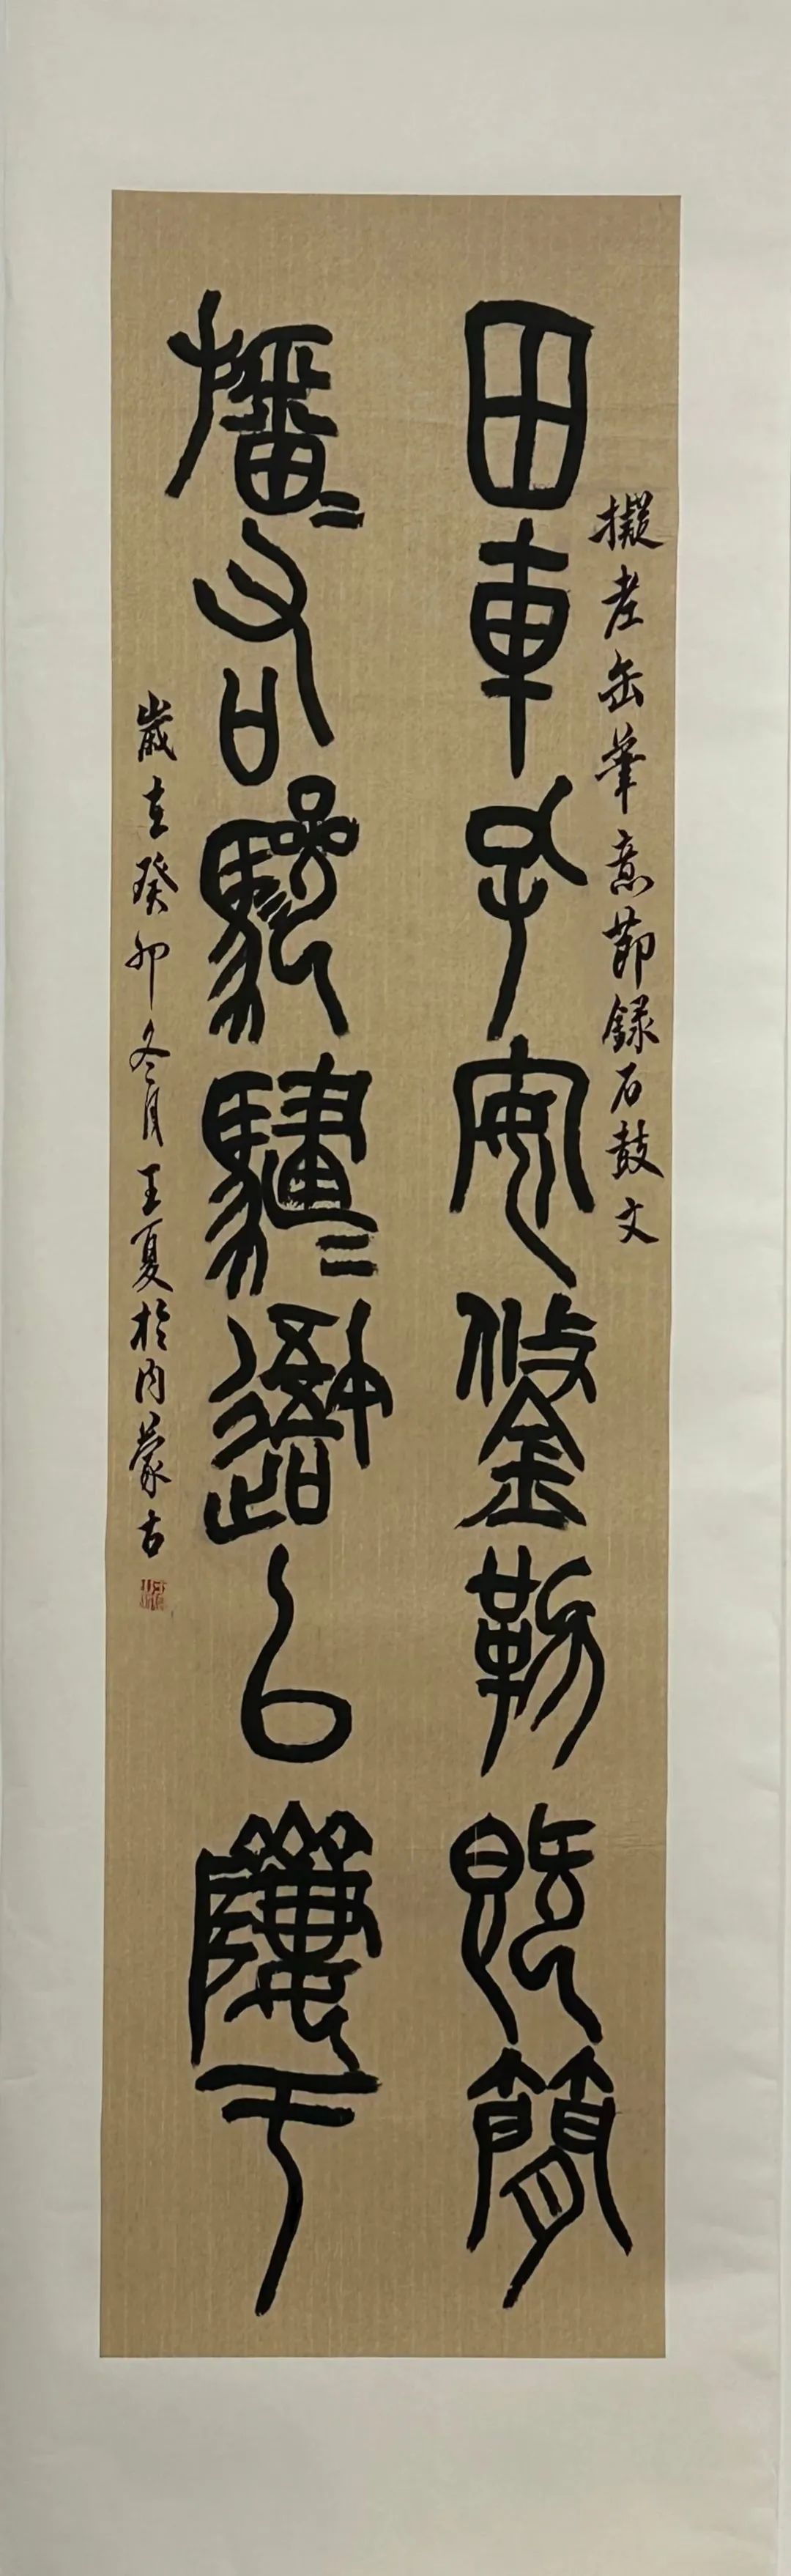 擬老缶筆意節錄石鼓文
田車孔安鋚勒既簡
旛〻右驂騝〻以隮于
歲在癸卯冬月王夏於内蒙古